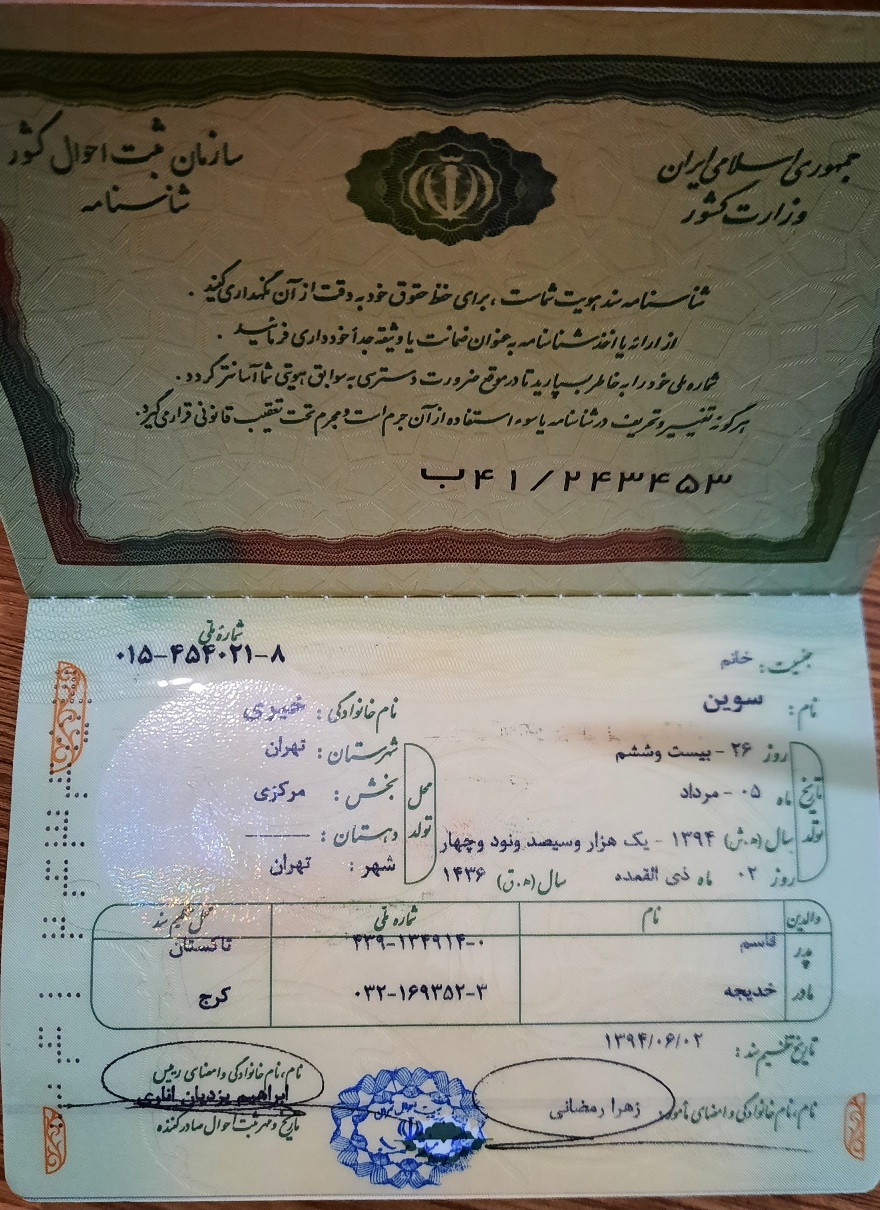 جمهوری اسلامی ایران
وزارت کشور
سازمان ثبت احوال کشور
شناسنامه
شناسنامه سند هویت شماست ، برای حفظ حقوق خود به دقت از آن نگهداری کنید .
از ارائه یا اخذ شناسنامه به عنوان ضمانت یا وثیقه جداً خودداری فرمائید .
شماره ملی خود را به خاطر بسپارید تا در موقع ضرورت دسترسی به سوابق هویتی شما آسانتر گردد .
هرگونه تغییر و تحریف در شناسنامه یا سوء استفاده از آن جرم است و مجرم تحت تعقیب قانونی قرار می گیرد.
ب۴۱/۲۴۳۴۵۳
شمارهٔ ملی
۰۱۵-۴۵۴۰۲۱-۸
جنسیت : خانم
نام : سوین
نام خانوادگی : خیری
تاریخ تولد
روز ۲۶ - بیست وششم
ماه ۰۵ - مرداد
سال (ه.ش) ۱۳۹۴ - یک هزار وسیصد ونود وچهار
روز ۰۲ ماه ذی القعده سال (ه.ق) ۱۴۳۶
محل تولد
شهرستان : تهران
بخش : مرکزی
دهستان : ———
شهر : تهران
والدین نام شماره ملی محل تنظیم سند
پدر قاسم ۴۳۹-۱۳۴۹۱۴-۰ تاکستان
مادر خدیجه ۰۳۲-۱۶۹۳۵۲-۳ کرج
تاریخ تنظیم سند : ۱۳۹۴/۰۶/۰۲
نام، نام خانوادگی و امضای مأمور: زهرا رمضانی
نام، نام خانوادگی و امضای رییس
ابراهیم یزدیان اناری
تاریخ و مهر ثبت احوال صادرکننده